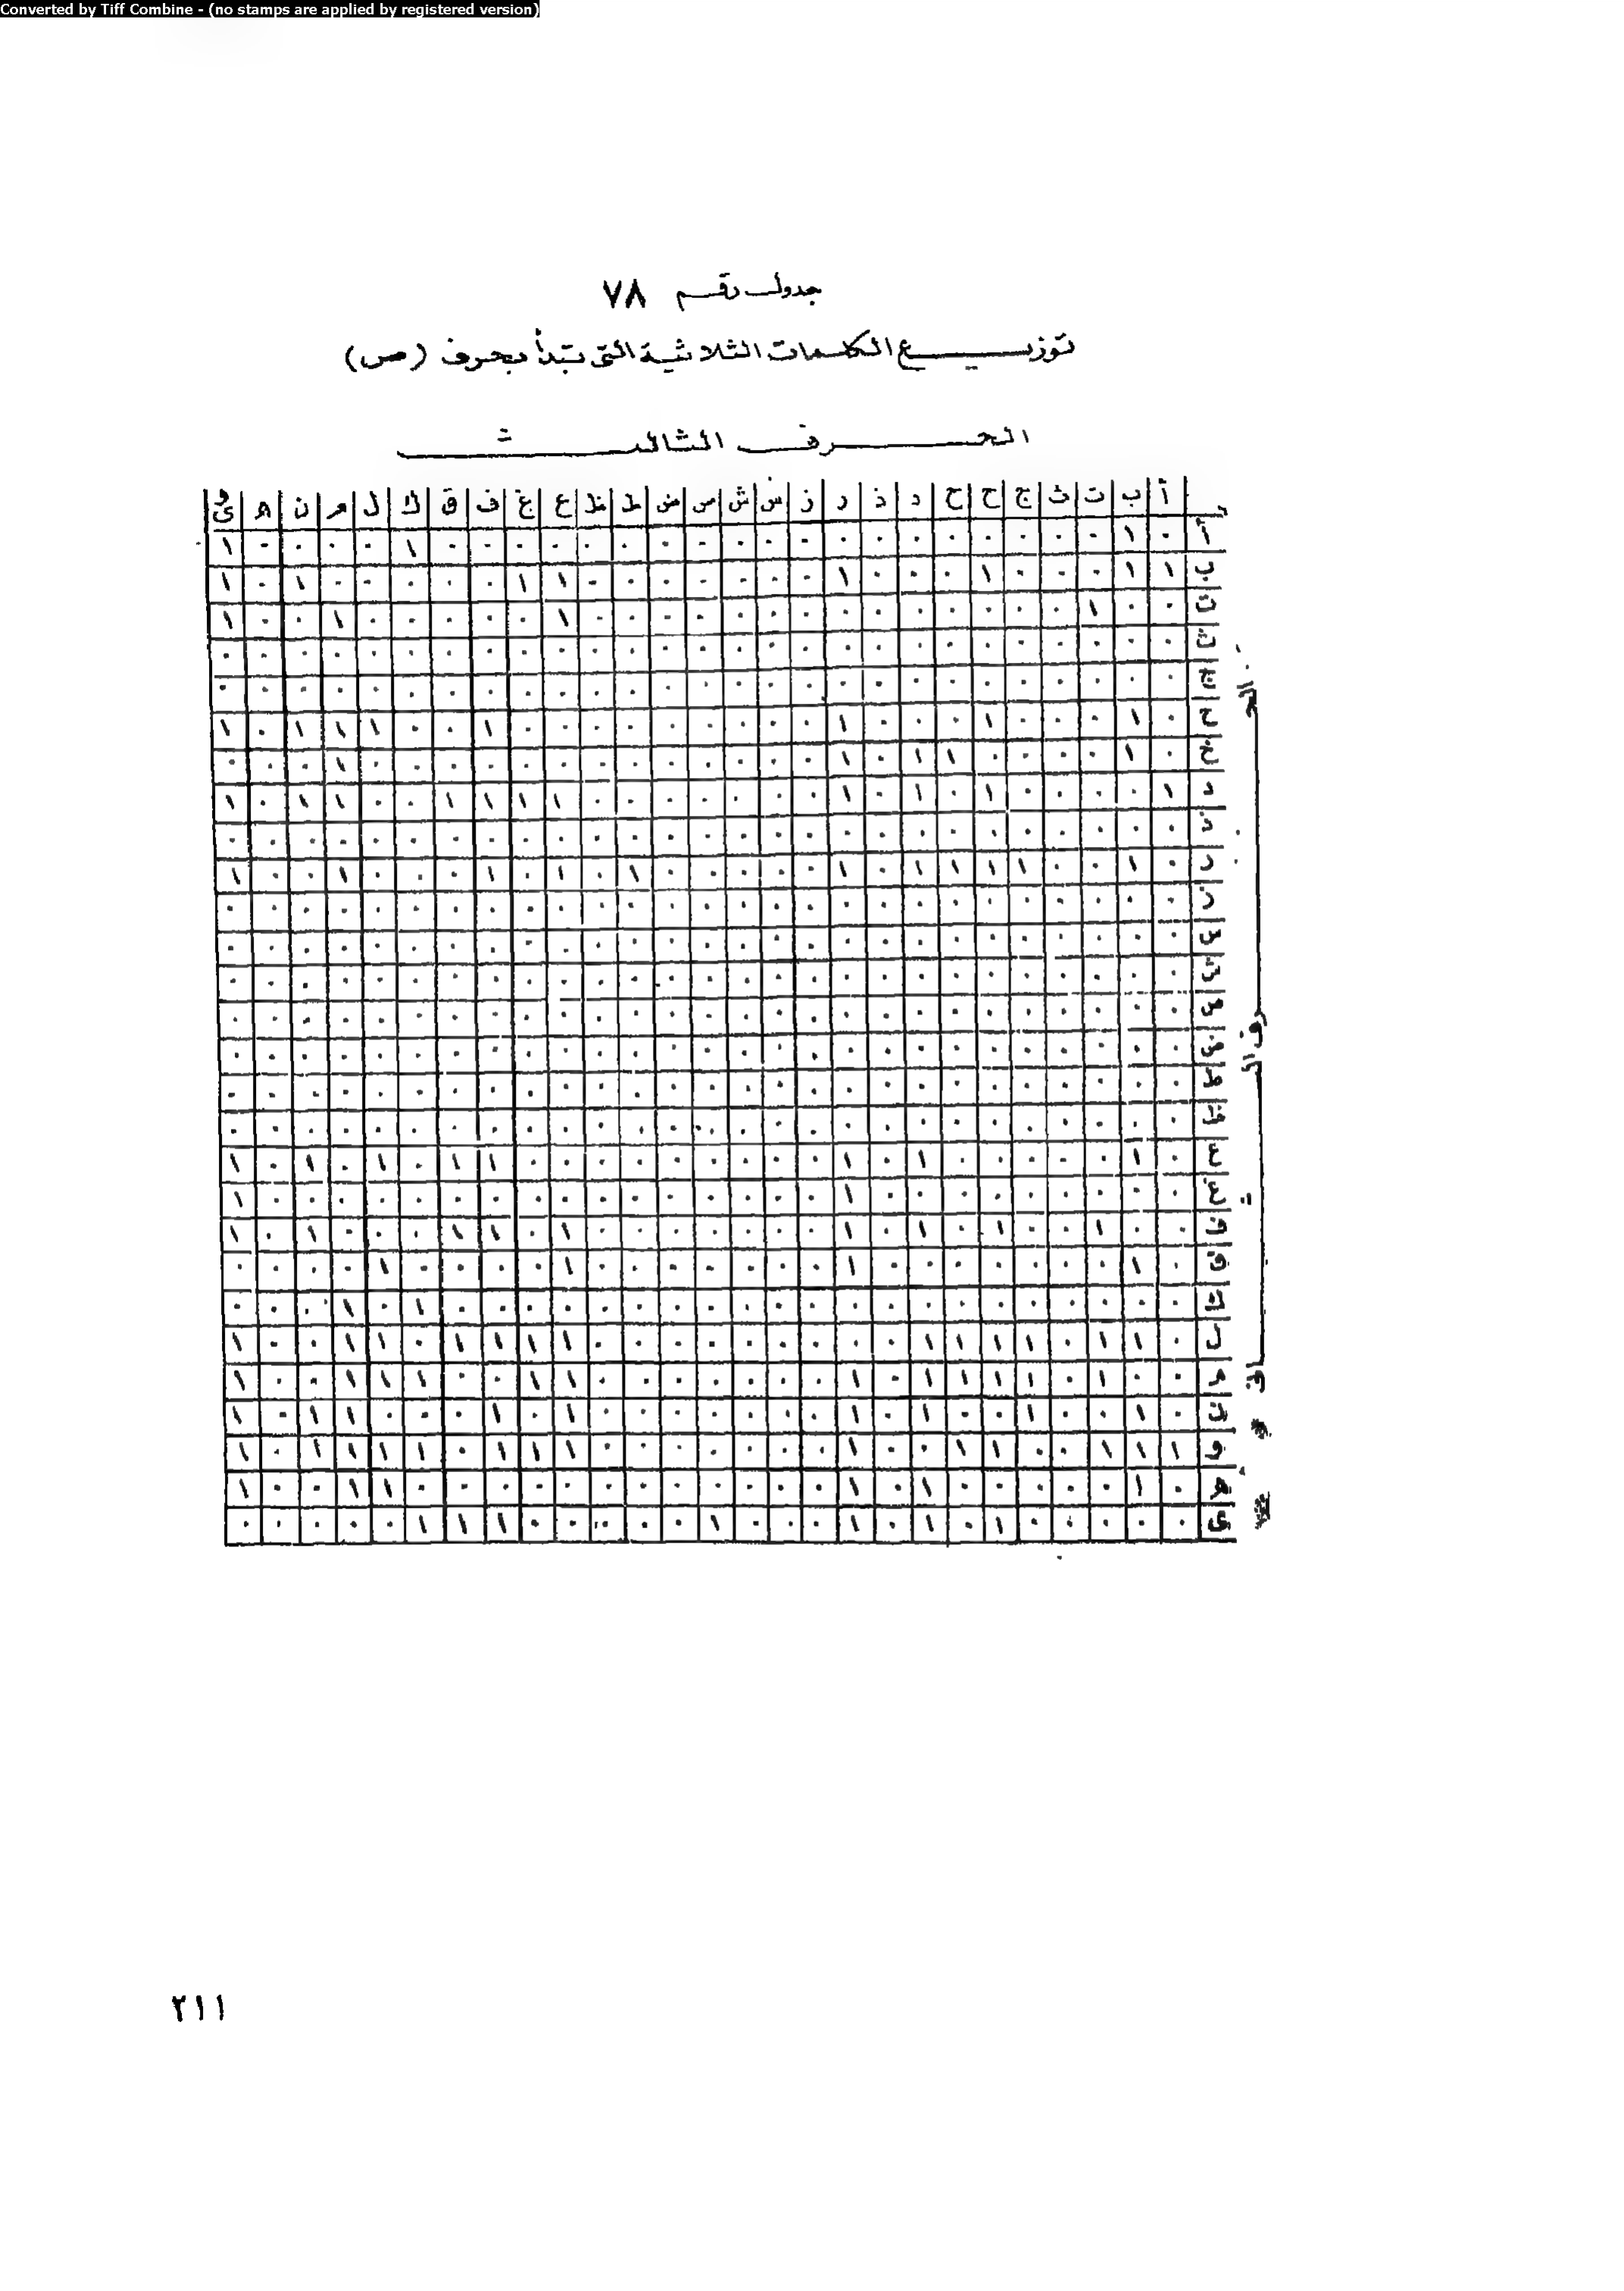 Converted by Tiff Combine - (no stamps are applied by registered version)
جدول رقم ٧٨
توزيع الكلمات الثلاثية التى تبدأ بحرف (ص)
الحرف الثالث
أ ب ت ث ج ح ح د ذ ر ز س ش ص ض ط ظ ع غ ف ق ك ل م ن ه و ى
الحرف الثانى
أ ٠ ١ ٠ ٠ ٠ ٠ ٠ ٠ ٠ ٠ ٠ ٠ ٠ ٠ ٠ ٠ ٠ ٠ ٠ ٠ ٠ ١ ٠ ٠ ٠ ٠ ١
ب ١ ١ ٠ ٠ ٠ ١ ٠ ٠ ٠ ١ ٠ ٠ ٠ ٠ ٠ ٠ ٠ ١ ١ ٠ ٠ ٠ ٠ ٠ ١ ٠ ١
ت ٠ ٠ ١ ٠ ٠ ٠ ٠ ٠ ٠ ٠ ٠ ٠ ٠ ٠ ٠ ٠ ٠ ١ ٠ ٠ ٠ ٠ ٠ ١ ٠ ٠ ١
ث ٠ ٠ ٠ ٠ ٠ ٠ ٠ ٠ ٠ ٠ ٠ ٠ ٠ ٠ ٠ ٠ ٠ ٠ ٠ ٠ ٠ ٠ ٠ ٠ ٠ ٠ ٠
ج ٠ ٠ ٠ ٠ ٠ ٠ ٠ ٠ ٠ ٠ ٠ ٠ ٠ ٠ ٠ ٠ ٠ ٠ ٠ ٠ ٠ ٠ ٠ ٠ ٠ ٠ ٠
ح ٠ ١ ٠ ٠ ٠ ١ ٠ ٠ ٠ ١ ٠ ٠ ٠ ٠ ٠ ٠ ٠ ٠ ٠ ١ ٠ ٠ ١ ١ ١ ٠ ١
خ ٠ ١ ٠ ٠ ٠ ٠ ١ ١ ٠ ١ ٠ ٠ ٠ ٠ ٠ ٠ ٠ ٠ ٠ ٠ ٠ ٠ ٠ ١ ٠ ٠ ٠
د ١ ٠ ٠ ٠ ٠ ١ ٠ ١ ٠ ١ ٠ ٠ ٠ ٠ ٠ ٠ ٠ ١ ١ ١ ١ ٠ ٠ ١ ١ ٠ ١
ذ ٠ ٠ ٠ ٠ ٠ ٠ ٠ ٠ ٠ ٠ ٠ ٠ ٠ ٠ ٠ ٠ ٠ ٠ ٠ ٠ ٠ ٠ ٠ ٠ ٠ ٠ ٠
ر ٠ ١ ٠ ٠ ١ ١ ١ ١ ٠ ١ ٠ ٠ ٠ ٠ ٠ ١ ٠ ١ ٠ ١ ٠ ٠ ٠ ١ ٠ ٠ ١
ز ٠ ٠ ٠ ٠ ٠ ٠ ٠ ٠ ٠ ٠ ٠ ٠ ٠ ٠ ٠ ٠ ٠ ٠ ٠ ٠ ٠ ٠ ٠ ٠ ٠ ٠ ٠
س ٠ ٠ ٠ ٠ ٠ ٠ ٠ ٠ ٠ ٠ ٠ ٠ ٠ ٠ ٠ ٠ ٠ ٠ ٠ ٠ ٠ ٠ ٠ ٠ ٠ ٠ ٠
ش ٠ ٠ ٠ ٠ ٠ ٠ ٠ ٠ ٠ ٠ ٠ ٠ ٠ ٠ ٠ ٠ ٠ ٠ ٠ ٠ ٠ ٠ ٠ ٠ ٠ ٠ ٠
ص ٠ ٠ ٠ ٠ ٠ ٠ ٠ ٠ ٠ ٠ ٠ ٠ ٠ ٠ ٠ ٠ ٠ ٠ ٠ ٠ ٠ ٠ ٠ ٠ ٠ ٠ ٠
ض ٠ ٠ ٠ ٠ ٠ ٠ ٠ ٠ ٠ ٠ ٠ ٠ ٠ ٠ ٠ ٠ ٠ ٠ ٠ ٠ ٠ ٠ ٠ ٠ ٠ ٠ ٠
ط ٠ ٠ ٠ ٠ ٠ ٠ ٠ ٠ ٠ ٠ ٠ ٠ ٠ ٠ ٠ ٠ ٠ ٠ ٠ ٠ ٠ ٠ ٠ ٠ ٠ ٠ ٠
ظ ٠ ٠ ٠ ٠ ٠ ٠ ٠ ٠ ٠ ٠ ٠ ٠ ٠ ٠ ٠ ٠ ٠ ٠ ٠ ٠ ٠ ٠ ٠ ٠ ٠ ٠ ٠
ع ٠ ١ ٠ ٠ ٠ ٠ ٠ ١ ٠ ١ ٠ ٠ ٠ ٠ ٠ ٠ ٠ ٠ ٠ ١ ١ ٠ ١ ٠ ١ ٠ ١
غ ٠ ٠ ٠ ٠ ٠ ٠ ٠ ٠ ٠ ١ ٠ ٠ ٠ ٠ ٠ ٠ ٠ ٠ ٠ ٠ ٠ ٠ ٠ ٠ ٠ ٠ ١
ف ٠ ٠ ١ ٠ ٠ ١ ٠ ١ ٠ ١ ٠ ٠ ٠ ٠ ٠ ٠ ٠ ١ ٠ ١ ١ ٠ ٠ ٠ ١ ٠ ١
ق ٠ ١ ٠ ٠ ٠ ٠ ٠ ٠ ٠ ١ ٠ ٠ ٠ ٠ ٠ ٠ ٠ ١ ٠ ٠ ٠ ٠ ١ ٠ ٠ ٠ ٠
ك ٠ ٠ ٠ ٠ ٠ ٠ ٠ ٠ ٠ ٠ ٠ ٠ ٠ ٠ ٠ ٠ ٠ ٠ ٠ ٠ ٠ ١ ٠ ١ ٠ ٠ ٠
ل ٠ ١ ١ ٠ ١ ١ ١ ١ ٠ ٠ ٠ ٠ ٠ ٠ ٠ ٠ ٠ ١ ١ ١ ١ ٠ ١ ١ ٠ ٠ ١
م ٠ ٠ ١ ٠ ١ ١ ١ ١ ٠ ١ ٠ ٠ ٠ ٠ ٠ ٠ ٠ ١ ١ ٠ ٠ ١ ١ ١ ٠ ٠ ١
ن ٠ ١ ٠ ٠ ١ ٠ ٠ ١ ٠ ١ ٠ ٠ ٠ ٠ ٠ ٠ ٠ ١ ٠ ١ ٠ ٠ ٠ ١ ١ ٠ ١
و ١ ١ ١ ٠ ٠ ١ ١ ٠ ٠ ١ ٠ ٠ ٠ ٠ ٠ ٠ ٠ ١ ١ ١ ٠ ١ ١ ١ ١ ٠ ١
ه ٠ ١ ٠ ٠ ٠ ٠ ٠ ١ ٠ ١ ٠ ٠ ٠ ٠ ٠ ٠ ٠ ٠ ٠ ٠ ٠ ٠ ١ ١ ٠ ٠ ١
ى ٠ ٠ ٠ ٠ ٠ ١ ٠ ١ ٠ ١ ٠ ٠ ٠ ١ ٠ ٠ ٠ ٠ ٠ ١ ١ ١ ٠ ٠ ٠ ٠ ٠
٢١١